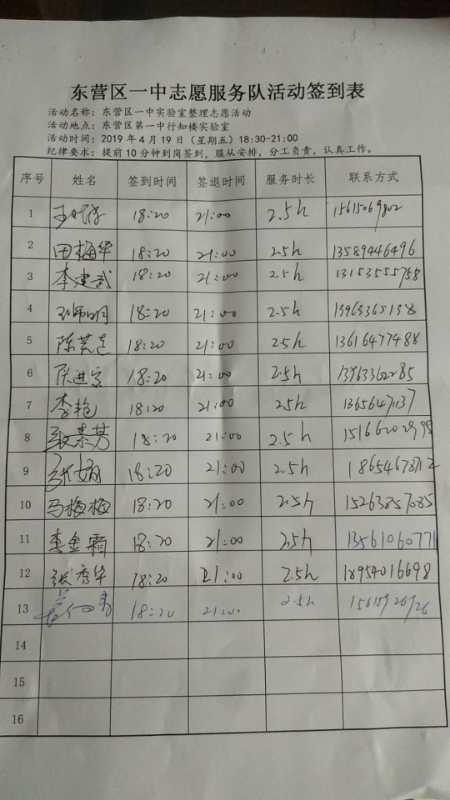 东营区一中志愿服务队活动签到表
活动名称：东营区一中实验室整理志愿活动
活动地点：东营区第一中行知楼实验室
活动时间：2019年4月19日（星期五）18:30-21:00
纪律要求：提前10分钟到岗签到，服从安排，分工负责，认真工作。
序号 姓名 签到时间 签退时间 服务时长 联系方式
1 18:20 21:00 2.5h
2 田梅华 18:20 21:00 2.5h 13589446496
3 李建武 18:20 21:00 2.5h
4 18:20 21:00 2.5h
5 18:20 21:00 2.5h 13616477488
6 18:20 21:00 2.5h
7 李艳 18:20 21:00 2.5h
8 18:20 21:00 2.5h
9 18:20 21:00 2.5h
10 马梅梅 18:20 21:00 2.5h 15263857085
11 李金霜 18:20 21:00 2.5h 13561060771
12 张秀华 18:20 21:00 2.5h 18954016698
13 18:20 21:00 2.5h
14
15
16